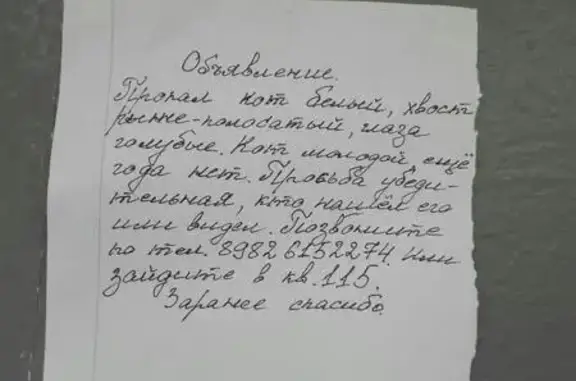 Объявление.
Пропал кот белый, хвост
рыже-полосатый, глаза
голубые. Кот молодой, ещё
года нет. Просьба убеди-
тельная, кто нашёл его
или видел. Позвоните
по тел. 89826152274. Или
зайдите в кв. 115.
Заранее спасибо.